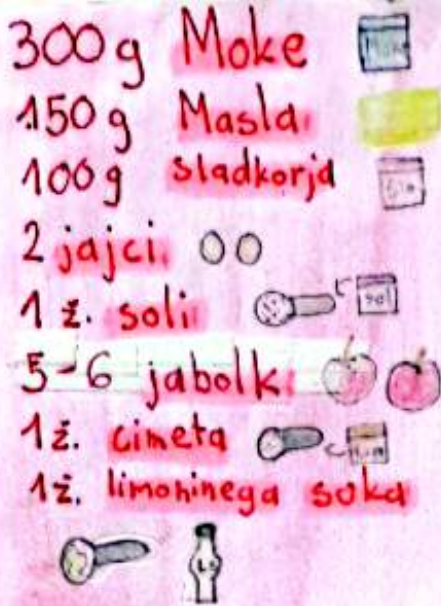 300g Moke
150g Masla
100g sladkorja
2 jajci
1 ž. soli
sol
5-6 jabolk
1ž. cimeta
1ž. limoninega soka